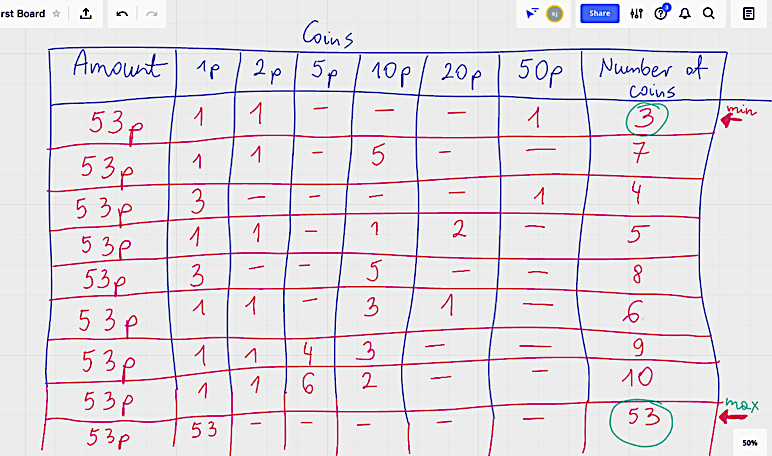 rst Board
KJ
Share
Coins
Amount 1p 2p 5p 10p 20p 50p Number of coins
53p 1 1 - - - 1 3 min
53p 1 1 - 5 - - 7
53p 3 - - - - 1 4
53p 1 1 - 1 2 - 5
53p 3 - - 5 - - 8
53p 1 1 - 3 1 - 6
53p 1 1 4 3 - - 9
53p 1 1 6 2 - - 10
53p 53 - - - - - 53 max
50%